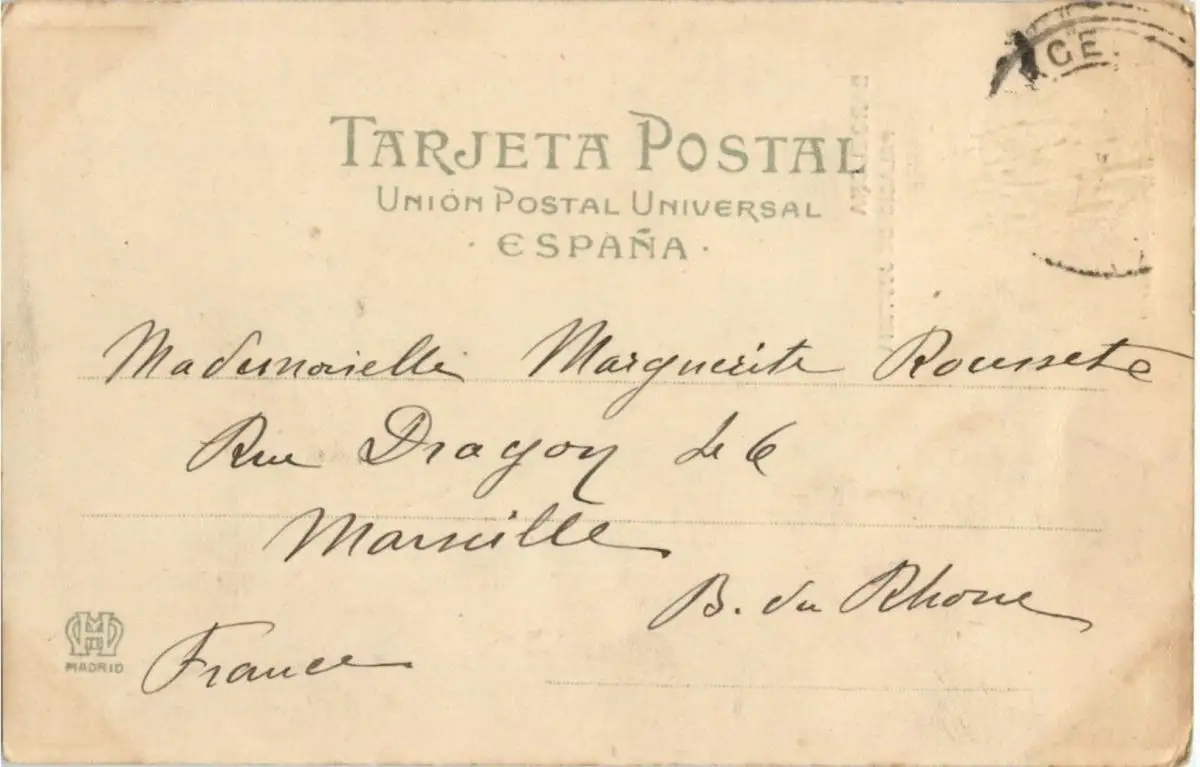 CE
TARJETA POSTAL
UNIÓN POSTAL UNIVERSAL
· ESPAÑA ·
Mademoiselle Marguerite Rousset
Rue Dragon
Marseille
B. du Rhone
MADRID
France